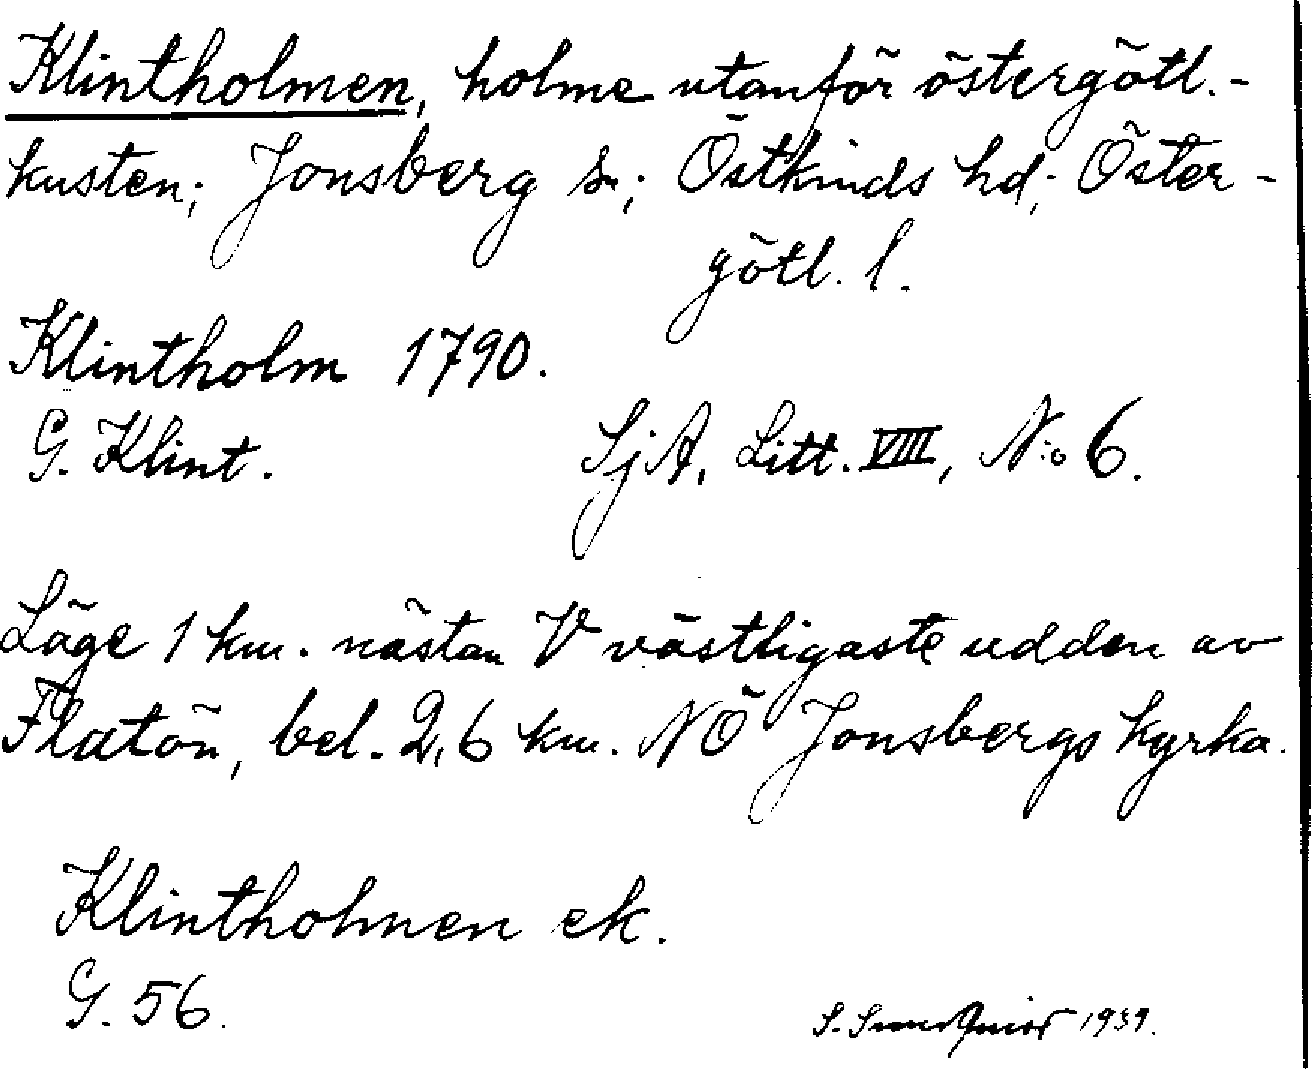 Klintholmen, holme utanför östergötl.-
kusten; Jonsberg sn; Östkinds hd; Öster-
götl. l.
Klintholm 1790.
G. Klint. SjA, Litt. VIII, N:o 6.
Läge 1 km. nästan V västligaste udden av
Flatön, bel. 2,6 km. NÖ Jonsbergs kyrka.
Klintholmen ek.
G. 56.
S. 1939.